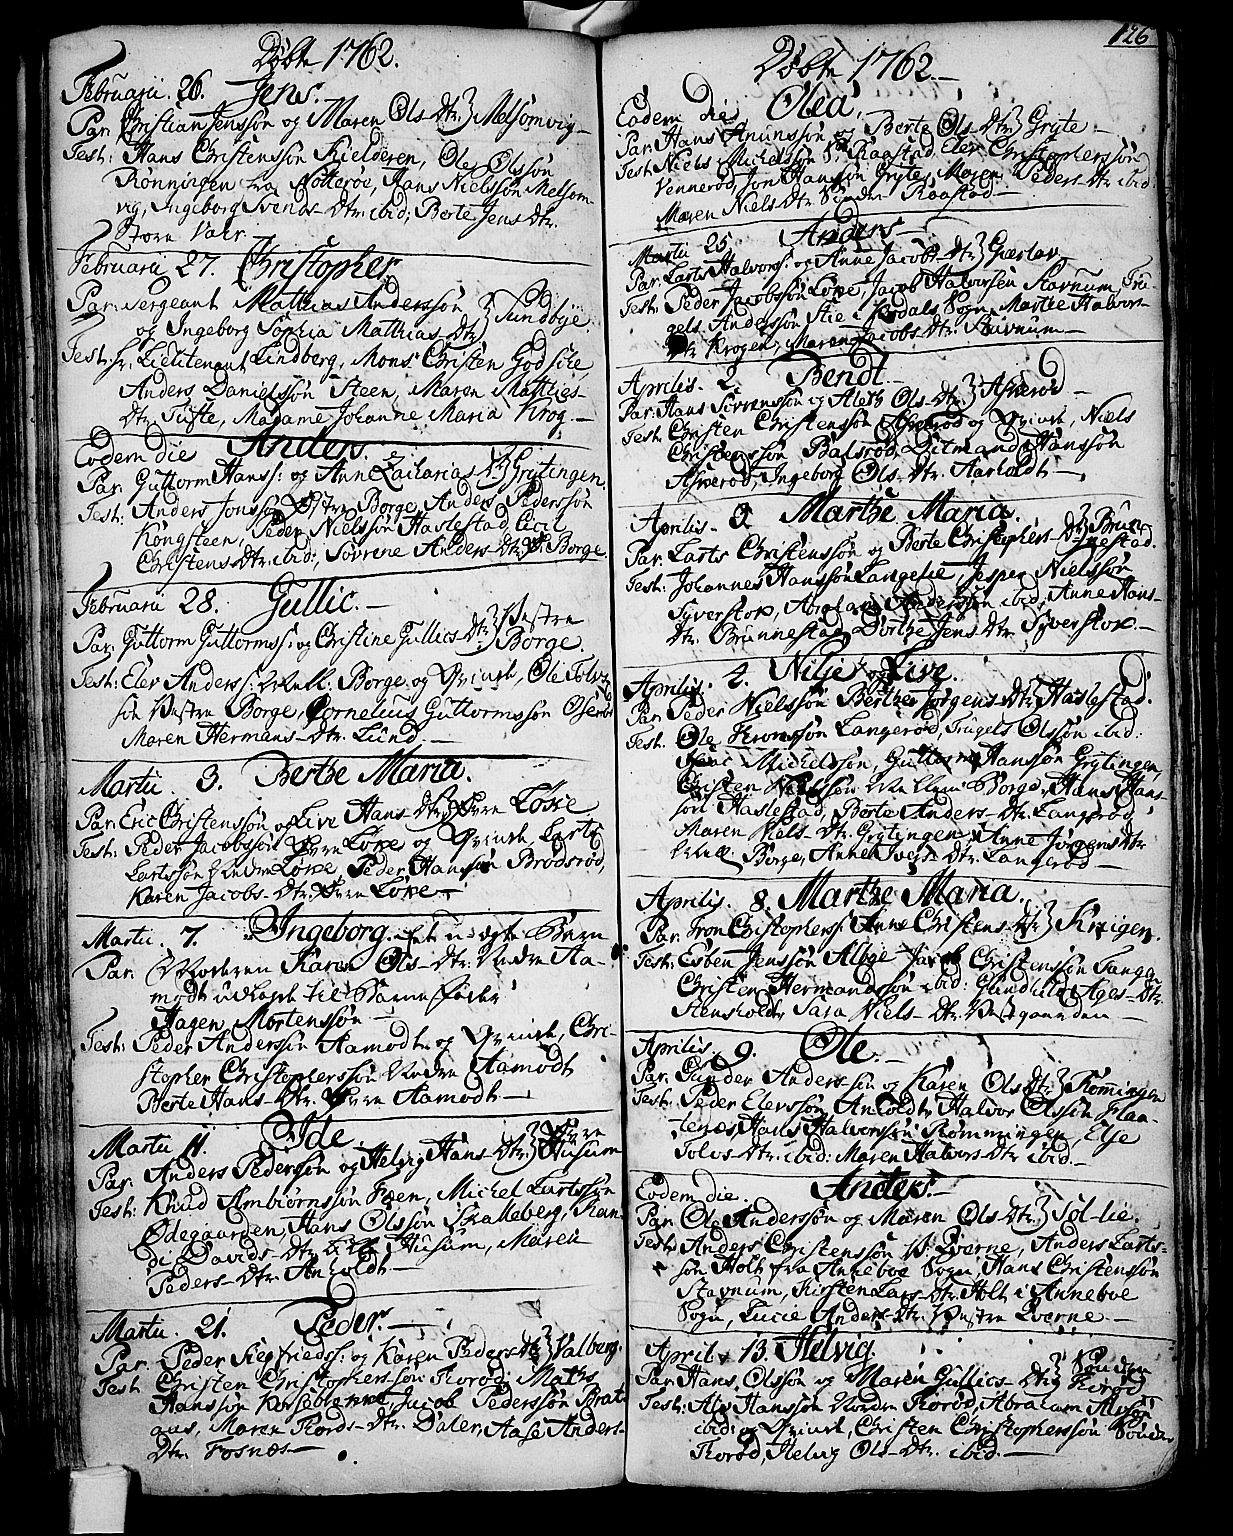 Døbte 1762.
Februarii. 26. Jens.
Par. Christian Jenssøn og Maren Ols-Dtr. Melsomvig-
Test: Hans Christenssøn Kielderen, Ole Olssøn
Rønningen fra Nøtterøe, Hans Nielssøn Melsom
vig, Ingeborg Svends-Dtr. ibid; Berte Jens Dtr.
Store Valr-
Februarii 27. Christopher
Par: Sergeant Mathias Anderssøn
og Ingeborg Sophia Mathias-Dtr. Sundbye
Test: hr. Lieutenant Lindberg, Mons. Christen Godsche
Anders Danielssøn Steen, Maren Matthies-
Dtr. Tufte, Madame Johanne Maria Krog-
Eodem die Anders.
Par. Guttorm Hanss: og Ann Zacharias Dtr Grytingen.
Test: Anders Jonssøn Østre Borge, Anders Pederssøn
Kongsteen, Peder Nielssøn Haslestad, Cecil
Christens-Dtr. ibid; Søvrene Anders-Dtr. Ø. Borge.
Februarii 28. Gullic.-
Par. Guttorm Guttormss: og Christine Gullics-Dtr. Vestre Borge.
Test: Elev Anderss: Borge og Qvinde, Ole Tolvs
søn Vestre Borge, Cornelius Guttormssøn
Maren Hermans-Dtr. Lund-
Martii. 3. Berthe Maria.
Par. Eric Christenssøn og Live Hans Dtr. Øvre Løkie
Test: Peder Jacobssøn Øvre Løke og Qvinde, Larts
Lartssøn Nedre Løke, Peder Hanssøn Brødsrød,
Karen Jacobs-Dtr. Øvre Løke-
Martii. 7. Ingeborg. Et uægte Barn
Par. Moderen Karen Ols-Dtr. Nedre Aa-
modt udlagde til Barnefader
Hagen Mortenssøn-
Test: Peder Anderssøn Aamodt og Qvinde, Chri-
stopher Christopherssøn Nedre Aamodt
Berte Hans-Dtr. Øvre Aamodt-
Martii 11. Ide.
Par. Anders Pederssøn og Helvig Hans-Dtr. Øvre Husum
Test: Knud Ambiørnssøn Foen, Michel Lartssøn
Ødegaarden, Hans Olssøn Skalleberg, Ran-
di Davids-Dtr. Husum, Maren
Peders-Dtr. Anholdt-
Martii. 21. Peder.-
Par. Peder Siegfrieds: og Karen Peders Dtr Valberg.
Test. Christen Christopherssøn Rorød, Maths
Hanssøn, Jacob Pederssøn Brat
aas, Maren Tords-Dtr. Dalen, Aase Anders-
Dtr. Fosnæs-
126
Døbte 1762.-
Eodem die Olea.
Par. Hans Amunssøn og Berte Ols-Dtr. Gryte-
Test: Niels Michelssøn S. Raastad, Elev Christopherssøn
Vennerød, Jon Hanssøn Gryte, Maren Peders-Dtr. ibid:
Maren Niels Dtr. Søndre Raastad-
Martii 25. Anders-
Par. Larts Halvorss: og Anne Jacobs-Dtr. Gierløv
Test: Peder Jacobssøn Løke, Jacob Halvorssøn Stavnum, Tru-
gels Anderssøn Stie i Sogn, Marthe Halvors-
Dtr. Krogen, Maren Jacobs-Dtr. Stavnum-
Aprilis. 2. Bendt.
Par. Hans Sørenssøn og Aleth Ols-Dtr. Askerød-
Test: Christen Christenssøn Askerød og Qvinde, Niels
Christenssøn Balsrød, Ditmand Hanssøn
Askerød, Ingeborg Ols-Dtr. Aarholdt-
Aprilis. 3. Marthe Maria.
Par. Larts Christenssøn og Berte Christophers-Dtr. Brun-
nestad.
Test: Johannes Hanssøn Langelie, Jesper Nielssøn
Syverstox, Abraham Pederssøn ibid, Anne Hans-
Dtr. Brunnestad, Dorthe Jens Dtr. Syverstox.-
Aprilis: 4. Nilje og Live.
Par. Peder Nielssøn Berthe Jørgens Dtr. Haslestad.
Test: Ole Langerød, Trugels Olssøn ibid:
Isaac Michelssøn, Guttorm Hanssøn Grytingen,
Christen Nielssøn Mellem Borge, Hans Hans-
søn Haslestad, Berte Anders-Dtr. Langerød,
Maren Niels-Dtr. Grytingen, Anne Jørgens Dtr
Mell: Borge, Anne Dtr. Langerød-
Aprilis. 8. Marthe Maria.
Par. Iron Christopherss: Anne Christens-Dtr.
Test: Esben Jenssøn Alboe, Jacob Christenssøn Tanga
Christen Hermandssøn ibid: Gunhild Ages-Dtr.
Stensholdt, Sara Niels-Dtr. Vestgaarden-
Aprilis 9. Ole.-
Par. Gunder Anders-søn og Karen Ols Dtr. Rømingen
Test: Peder Elevssøn Anholdt, Halvor Olssøn Flaa-
tenæs, Hans Halvorssøn Rømmingen, Else
Tolvs-Dtr. ibid: Maren Halvors-Dtr. ibid.-
Eodem die. Anders.-
Par. Ole Anderssøn og Maren Ols Dtr. Sol-lie.
Test: Anders Christenssøn V. Qverne, Anders Larts-
søn Holt fra Anneboe Sogn, Hans Christenssøn
Stavnum, Kirsten Lars-Dtr. Holt i Anneboe
Sogn, Lucie Anders-Dtr. Vestre Qverne-
April. 13. Helvig.
Par. Hans Olssøn og Maren Gullics-Dtr. Sønden Rorød
Test: Alv Hanssøn Norden Rorød, Abraham
ibid: og Qvinde, Christen Christopherssøn Sønden
Rorød, Helvig Ols-Dtr. ibid.-